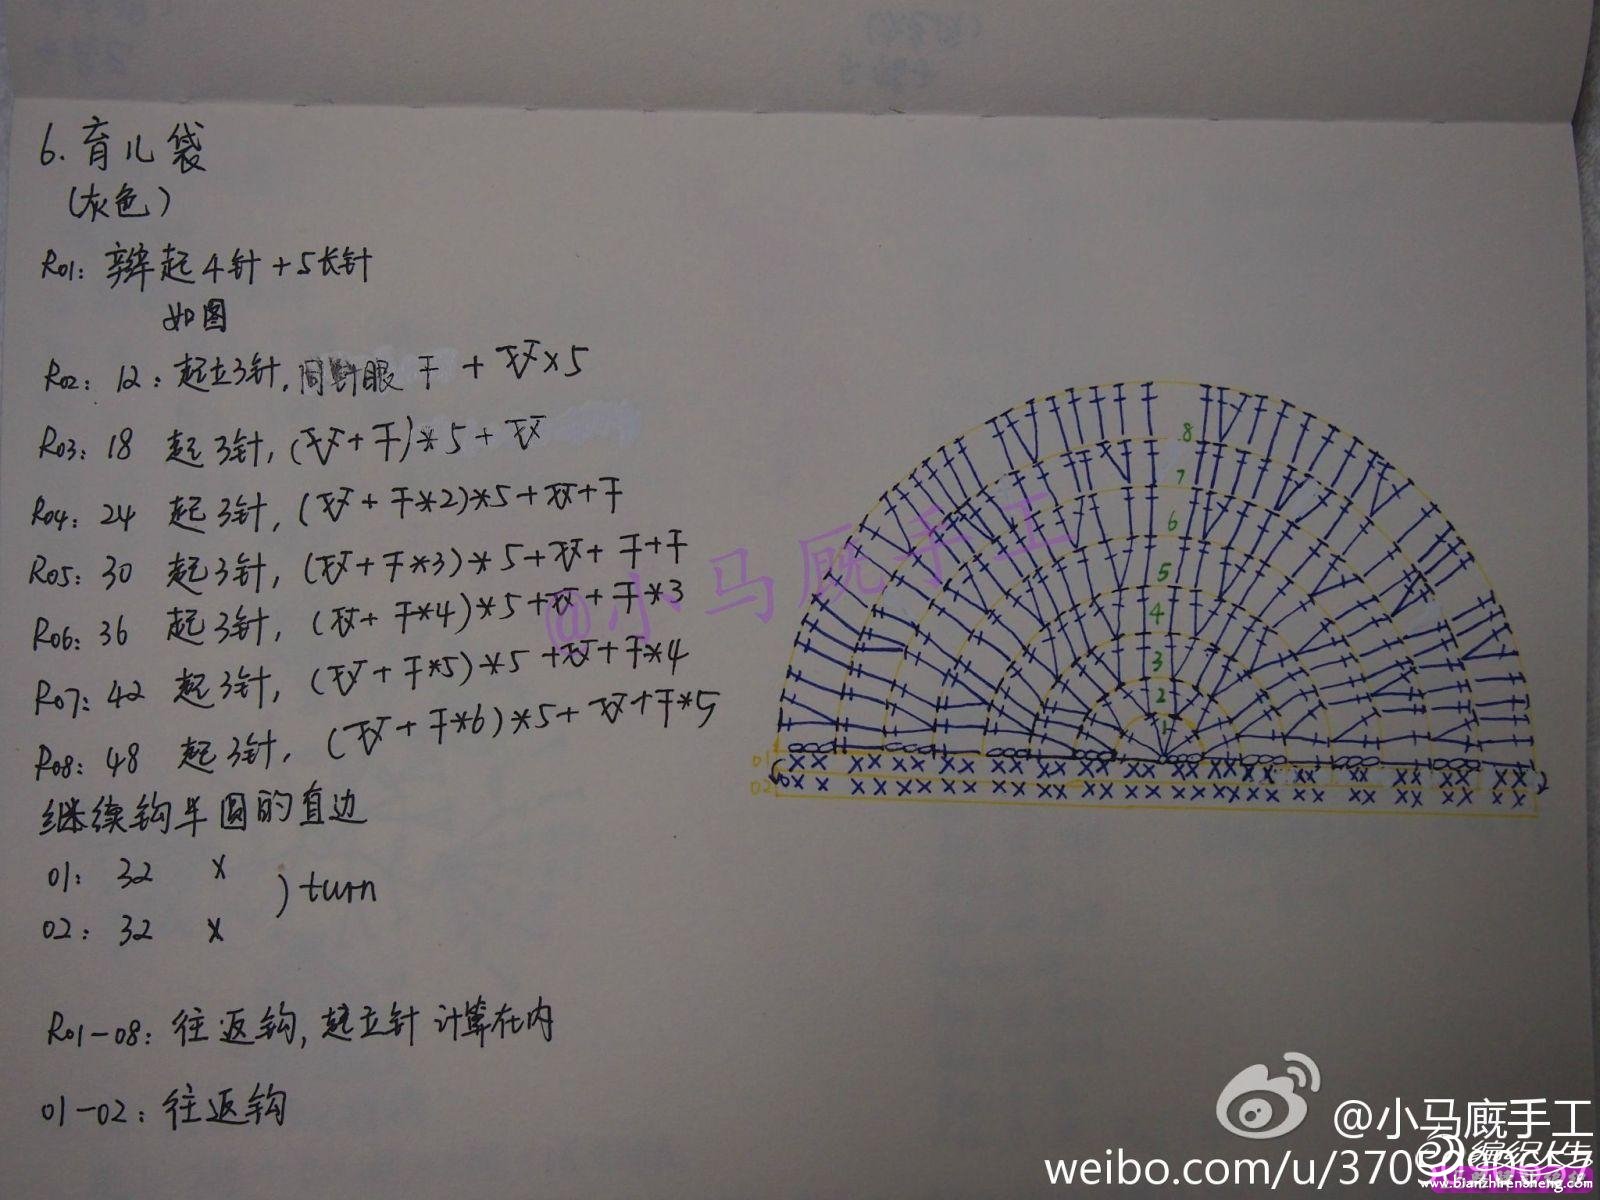 6. 育儿袋
(灰色)
R01: 辫起4针+5长针
如图
R02: 12: 起立3针, 同针眼 干 + 𠀾×5
R03: 18 起3针, ( +干)*5+
R04: 24 起3针, ( +干*2)*5+ +干
R05: 30 起3针, ( +干*3)*5+ +干+干
R06: 36 起3针, ( +干*4)*5+ +干*3
R07: 42 起3针, ( +干*5)*5+ +干*4
R08: 48 起3针, ( +干*6)*5+ +干*5
继续钩半圆的直边
01: 32 x
) turn
02: 32 x
R01-08: 往返钩, 起立针 计算在内
01-02: 往返钩
8
7
6
5
4
3
2
1
01
02
@小马厩手工
@小马厩手工
编织人生
www.bianzhirensheng.com